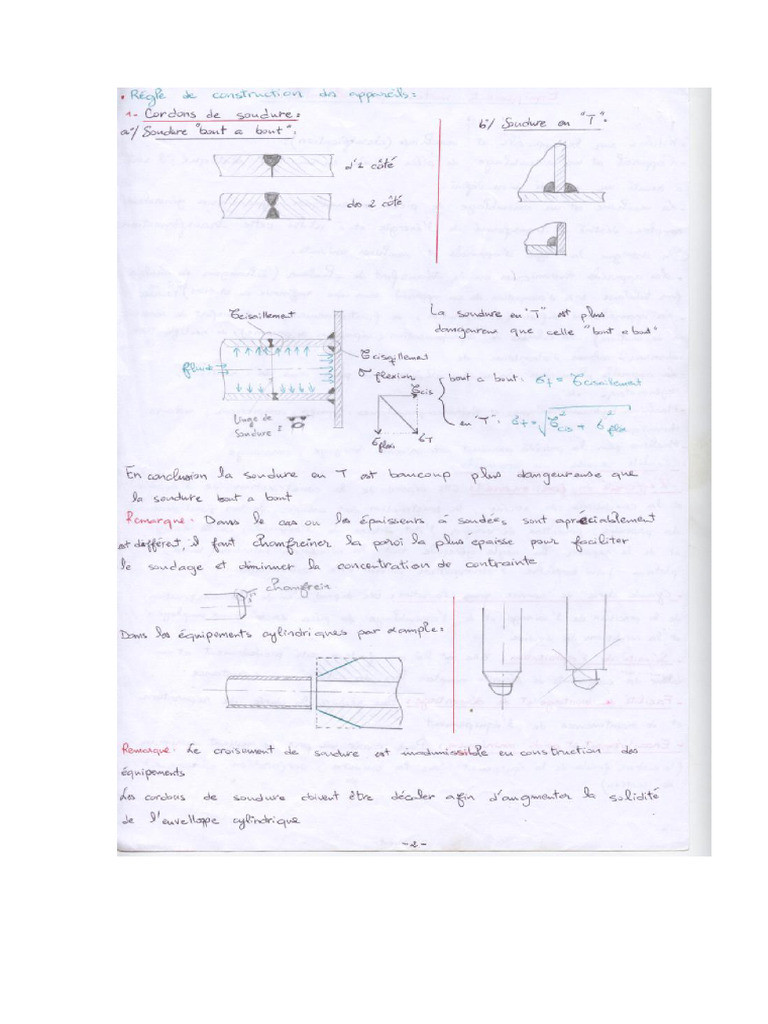 • Régle de construction des appareils:
1- Cordons de soudure:
a°/ Soudure "bout a bout":
d'1 côté
des 2 côté
b°/ Soudure en "T":
La soudure en "T" est plus
dangeureux que celle "bout a bout"
τcisaillement
fluide
τcisaillement
σ flexion
Usage de
Soudure:
τcis
σflex
σT
bout a bout: σt = τcisaillement
en "T": σt = √τ²cis + σ²flex
En conclusion la soudure en T est baucoup plus dangeureuse que
la soudure bout a bout
Remarque: Dans le cas ou les épaisseurs à soudées sont apréciablement
est différent, il faut chamfreiner la paroi la plus épaisse pour faciliter
le soudage et diminuer la concentration de contrainte
chamfrein
Dans les équipements cylindriques par example:
Remarque: Le croisament de soudure est inadmissible en construction des
équipements
Les cordons de soudure doivent être décaler afin d'augmenter la solidité
de l'envelloppe cylindrique
-2-